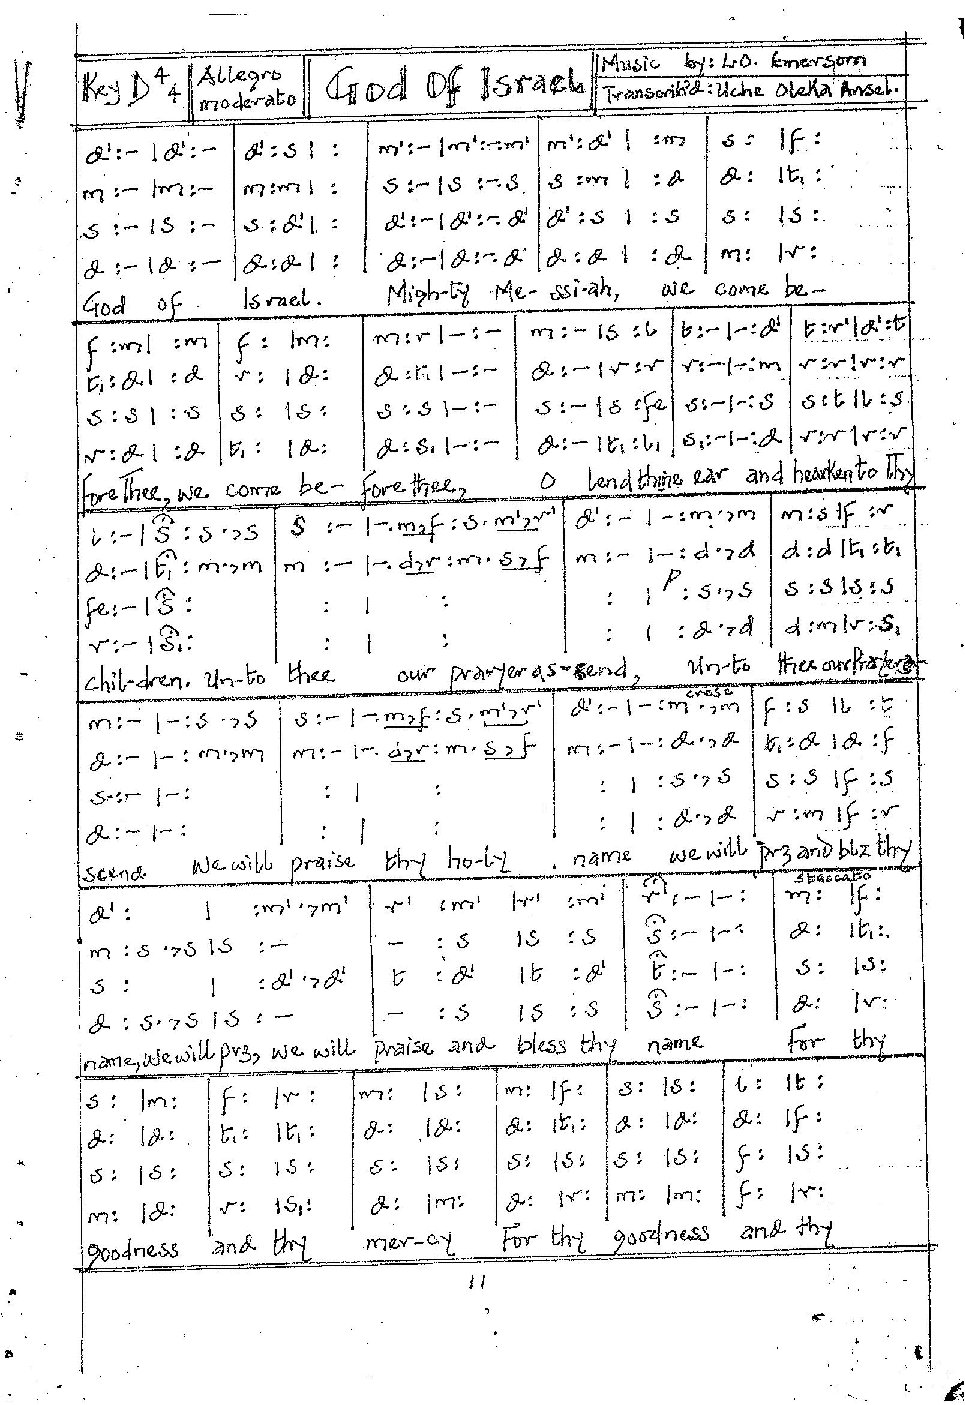 Key D 4/4 Allegro moderato God Of Israel Music by: L.O. Emersom
Transcrib'd: Uche Oleka Ansel.
d':- |d':- | d':s | : | m':- |m':-.m' | m':d' | :m | s: |f:
m:- |m:- | m:m | : | s:- |s:-.s | s:m | :d | d: |t₁:
s:- |s:- | s:d' | : | d':- |d':-.d' | d':s | :s | s: |s:
d:- |d:- | d:d | : | d:- |d:-.d | d:d | :d | m: |r:
God of Israel. Migh-ty Me-ssi-ah, we come be-
f:m | :m | f: |m: | m:r |-:- | m:- |s:t | t:- |-:d' | t:r' |d':t
t₁:d | :d | r: |d: | d:t₁ |-:- | d:- |r:r | r:- |-:m | r:r |r:r
s:s | :s | s: |s: | s:s |-:- | s:- |s:fe | s:- |-:s | s:t |t:s
r:d | :d | t₁: |d: | d:s₁ |-:- | d:- |t₁:t₁ | s₁:- |-:d | r:r |r:r
fore Thee, we come be- fore thee, O lend thine ear and hearken to Thy
l:- |s:s.,s | s:- |-.m,f:s.m',r' | d':- |-:m.,m | m:s |f:r
d:- |t₁:m.,m | m:- |-.d,r:m.s,f | m:- |-:d.,d | d:d |t₁:t₁
fe:- |s: | : | : | : | p:s.,s | s:s |s:s
r:- |s₁: | : | : | : | :d.,d | d:m |r:s₁
chil-dren. Un-to thee our prayer as-send, un-to thee our
m:- |-:s.,s | s:- |-.m,f:s.m',r' | d':- |-:m.,m | f:s |l:t
d:- |-:m.,m | m:- |-.d,r:m.s,f | m:- |-:d.,d | t₁:d |d:f
s:- |-: | : | : | : | :s.,s | s:s |f:s
d:- |-: | : | : | : | :d.,d | r:m |f:r
scend we will praise thy ho-ly name we will prz and blz thy
staccato
d': | :m'.,m' | r':m' |r':m' | r':- |-: | m: |f:
m:s.,s |s:- | -:s |s:s | s:- |-: | d: |t₁:
s: | :d'.,d' | t:d' |t:d' | t:- |-: | s: |s:
d:s.,s |s:- | -:s |s:s | s:- |-: | d: |r:
name, we will prz, we will praise and bless thy name for thy
s: |m: | f: |r: | m: |s: | m: |f: | s: |s: | l: |t:
d: |d: | t₁: |t₁: | d: |d: | d: |t₁: | d: |d: | d: |f:
s: |s: | s: |s: | s: |s: | s: |s: | s: |s: | f: |s:
m: |d: | r: |s₁: | d: |m: | d: |r: | m: |m: | f: |r:
goodness and thy mer-cy For thy goodness and thy
11